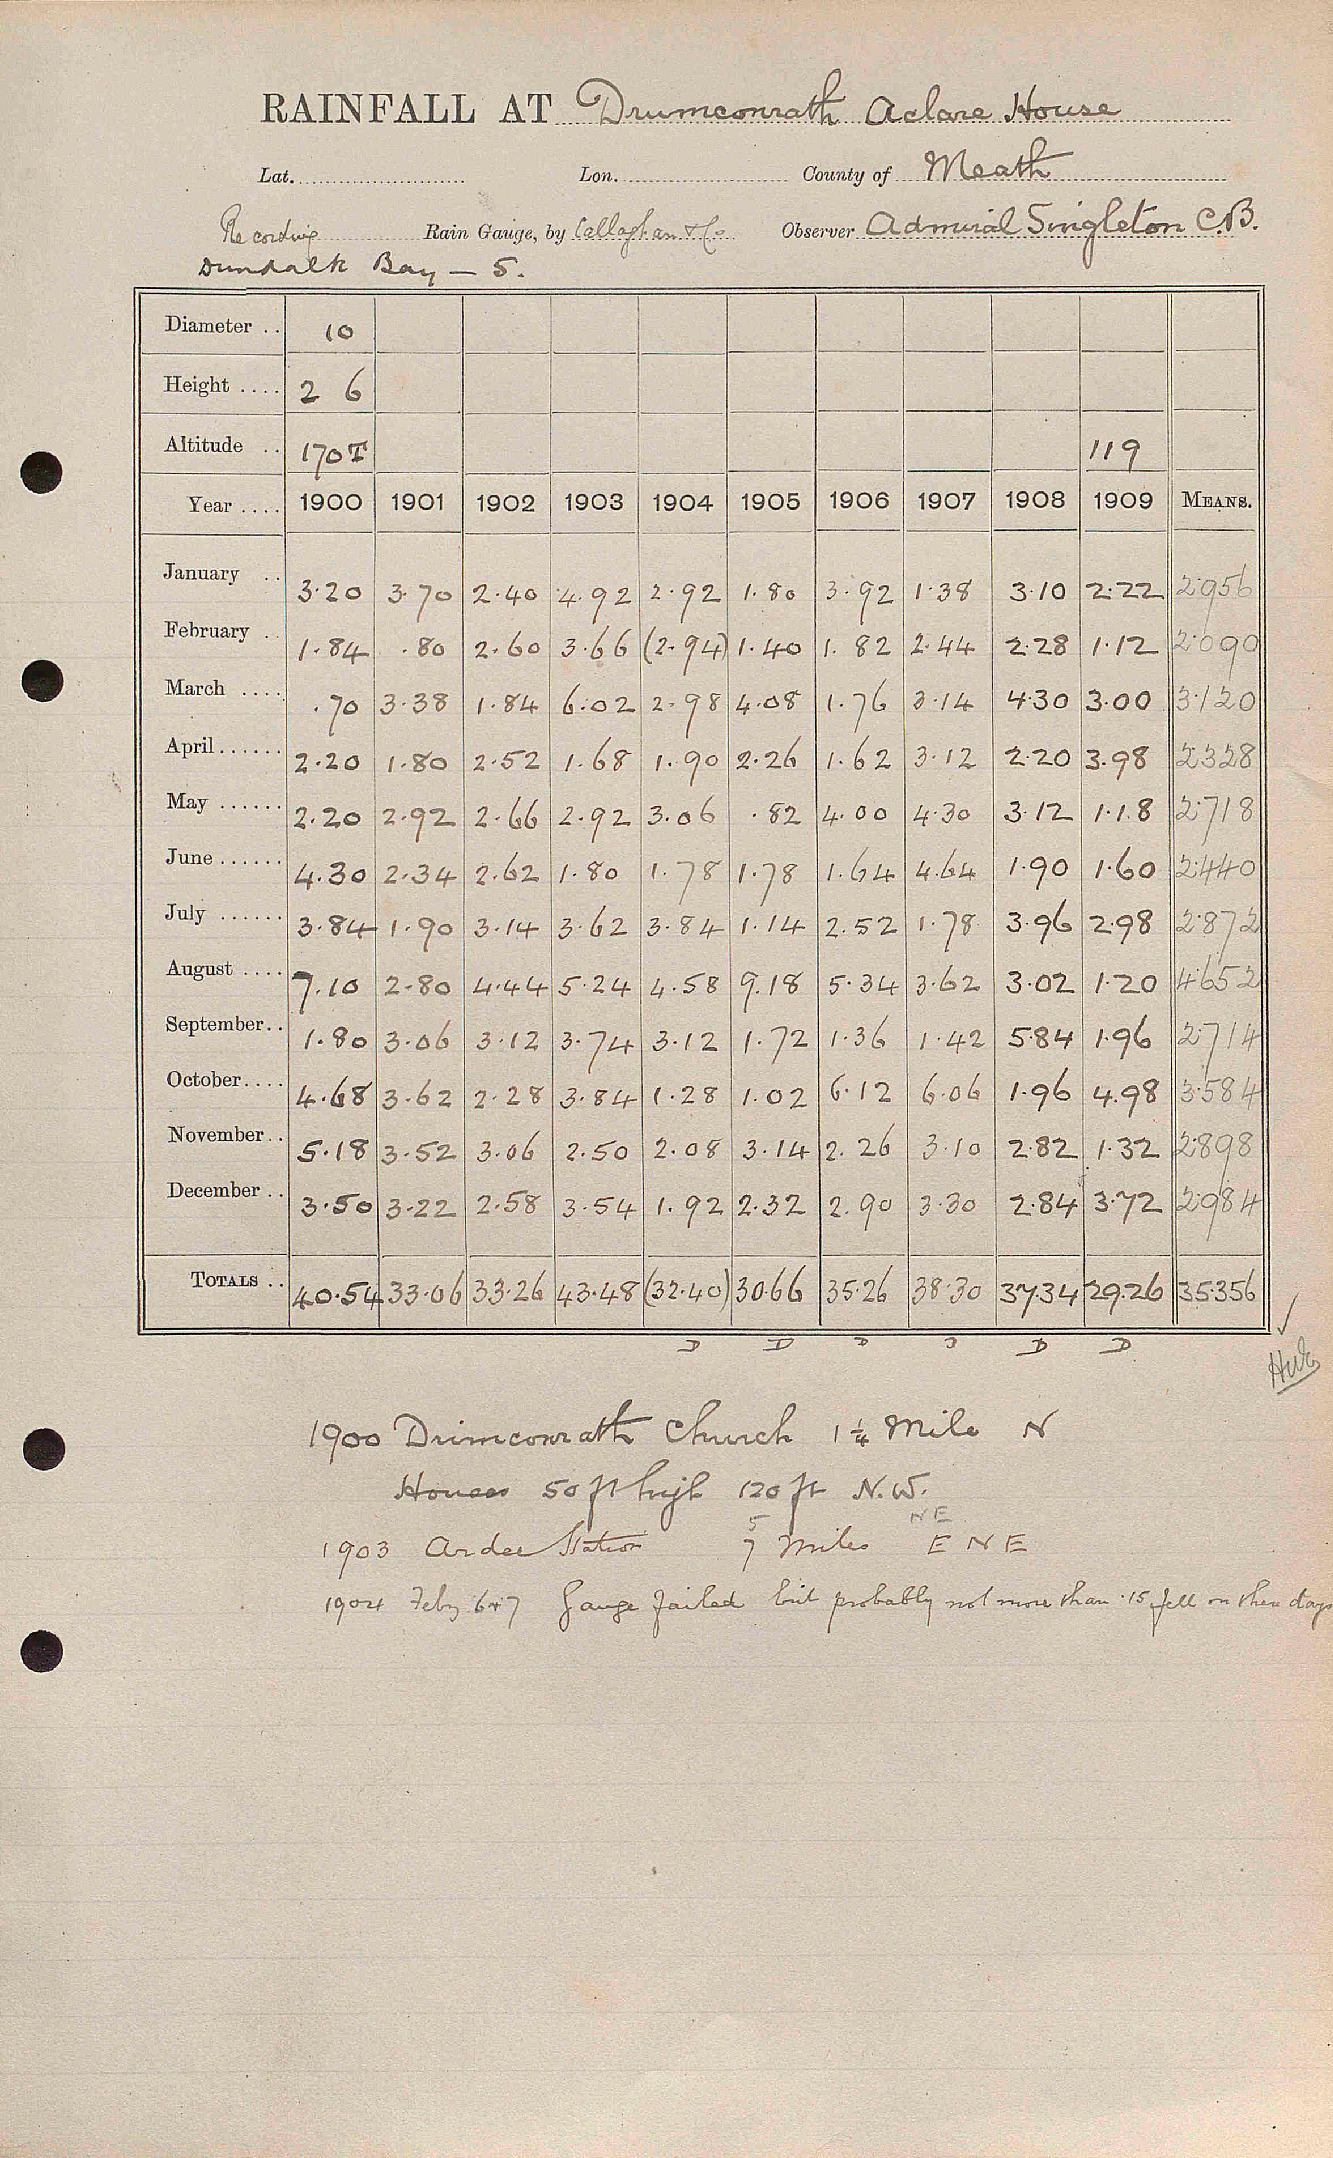 RAINFALL AT Drumconrath Aclare House
Lat. Lon. County of Meath
Recording Rain Gauge, by Callaghan & Co Observer Admiral Singleton C.B.
Dundalk Bay — 5.
Diameter .. 10
Height .... 2 6
Altitude .. 170 T 119
Year .... 1900 1901 1902 1903 1904 1905 1906 1907 1908 1909 MEANS.
January .. 3.20 3.70 2.40 4.92 2.92 1.80 3.92 1.38 3.10 2.22 2.956
February .. 1.84 .80 2.60 3.66 (2.94) 1.40 1.82 2.44 2.28 1.12 2.090
March .... .70 3.38 1.84 6.02 2.98 4.08 1.76 3.14 4.30 3.00 3.120
April ...... 2.20 1.80 2.52 1.68 1.90 2.26 1.62 3.12 2.20 3.98 2.328
May ...... 2.20 2.92 2.66 2.92 3.06 .82 4.00 4.30 3.12 1.18 2.718
June ...... 4.30 2.34 2.62 1.80 1.78 1.78 1.64 4.64 1.90 1.60 2.440
July ...... 3.84 1.90 3.14 3.62 3.84 1.14 2.52 1.78 3.96 2.98 2.872
August .... 7.10 2.80 4.44 5.24 4.58 9.18 5.34 3.62 3.02 1.20 4.652
September .. 1.80 3.06 3.12 3.74 3.12 1.72 1.36 1.42 5.84 1.96 2.714
October .... 4.68 3.62 2.28 3.84 1.28 1.02 6.12 6.06 1.96 4.98 3.584
November .. 5.18 3.52 3.06 2.50 2.08 3.14 2.26 3.10 2.82 1.32 2.898
December .. 3.50 3.22 2.58 3.54 1.92 2.32 2.90 3.30 2.84 3.72 2.984
TOTALS .. 40.54 33.06 33.26 43.48 (32.40) 30.66 35.26 38.30 37.34 29.26 35.356
D D D D D D
1900 Drimconrath Church 1 1/4 Mile N
House 50 ft high 120 ft N.W.
5 NE
1903 Ardee Station 7 Miles E N E
1904 Feby 6+7 Gauge failed but probably not more than .15 fell on these days